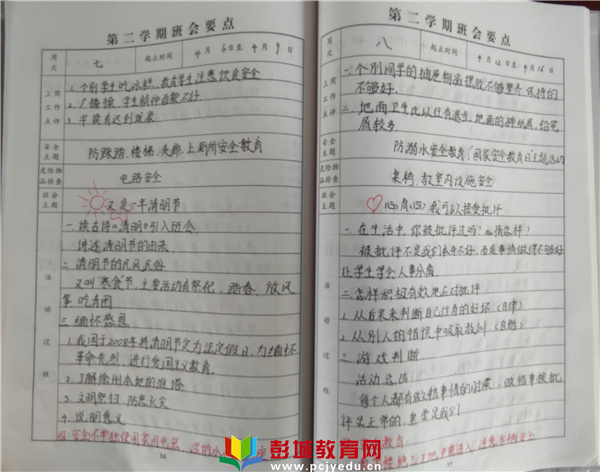 第二学期班会要点
周次
七
起止时间
4月6日至4月9日
上周工作点评
1.个别学生吃冰糕,教育学生注意饮食安全
2.广播操,学生精神面貌不好
3.学
安全主题
防踩踏、楼梯、走廊、上厕所安全教育
危险物品排查
电路安全
班会主题
又是一年清明节
活动过程
一、读古诗《清明》引入班会
讲述清明节的由来
二、清明节的风风民俗
又叫"寒食"节,主要活动有祭祀、踏春、放风
筝、吃青团
三、缅怀感恩
1.我国于2008年将清明节定为法定假日,为了缅怀
革命先烈,进行爱国主义教育。
2.了解徐州本地的
3.文明祭扫,防患火灾
4.说明意义
第二学期班会要点
周次
八
起止时间
4月12日至4月16日
上周工作点评
一、个别同学的抽屉物品摆放不够整齐,保持的
不够好。
二、地面卫生比以往有退步,地面的碎纸屑、铅笔
屑较多
安全主题
防溺水安全教育,"国家安全教育日"主题活动
危险物品排查
桌椅、教室内设施安全
班会主题
我可以接受批评
活动过程
一、在生活中,你被批评过吗?心情怎样?
被批评不是我们本来不好,而是事情做得不够好
让学生学会人事分离
二、怎样积极有效地应对批评
1.从自来来判断自己行为的好坏(自律)
2.从别人的错误中吸取教训(自勉)
三、游戏判断
活动总结
每个人都有做错事情的时候,做错事被批
评是正常的,
彭城教育网
www.pcjyedu.cn